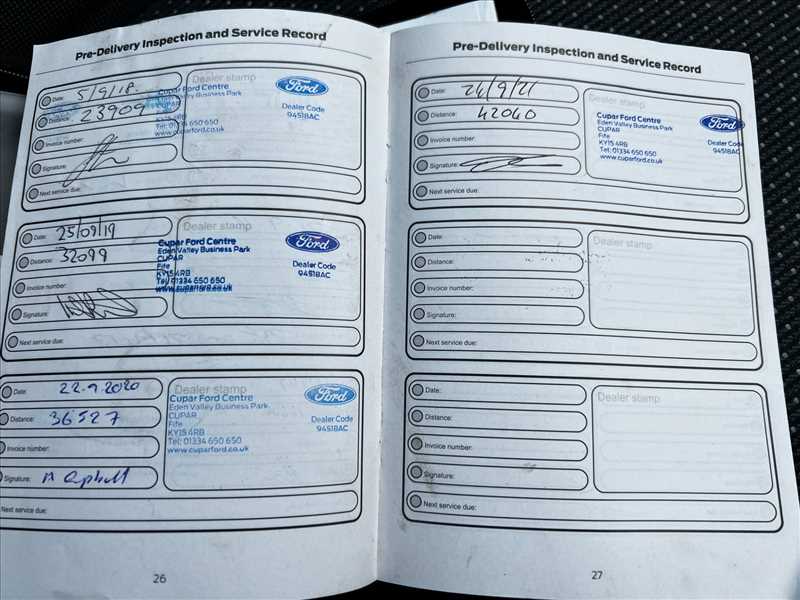 Pre-Delivery Inspection and Service Record
Date: 5/9/18.
Distance: 23909
Invoice number:
Signature:
Next service due:
Dealer stamp
Cupar Ford Centre
Eden Valley Business Park
CUPAR
Fife
KY15 4RB
Tel: 01334 650 650
www.cuparford.co.uk
Ford
Dealer Code
94518AC
Date: 25/09/19
Distance: 32099
Invoice number:
Signature:
Next service due:
Dealer stamp
Cupar Ford Centre
Eden Valley Business Park
CUPAR
Fife
KY15 4RB
Tel: 01334 650 650
www.cuparford.co.uk
Ford
Dealer Code
94518AC
Date: 22.9.2020
Distance: 36527
Invoice number:
Signature:
Next service due:
Dealer stamp
Cupar Ford Centre
Eden Valley Business Park
CUPAR
Fife
KY15 4RB
Tel: 01334 650 650
www.cuparford.co.uk
Ford
Dealer Code
94518AC
26
Pre-Delivery Inspection and Service Record
Date: 24/9/21
Distance: 42040
Invoice number:
Signature:
Next service due:
Dealer stamp
Cupar Ford Centre
Eden Valley Business Park
CUPAR
Fife
KY15 4RB
Tel: 01334 650 650
www.cuparford.co.uk
Ford
Dealer Code
94518AC
Date:
Distance:
Invoice number:
Signature:
Next service due:
Dealer stamp
Date:
Distance:
Invoice number:
Signature:
Next service due:
Dealer stamp
27